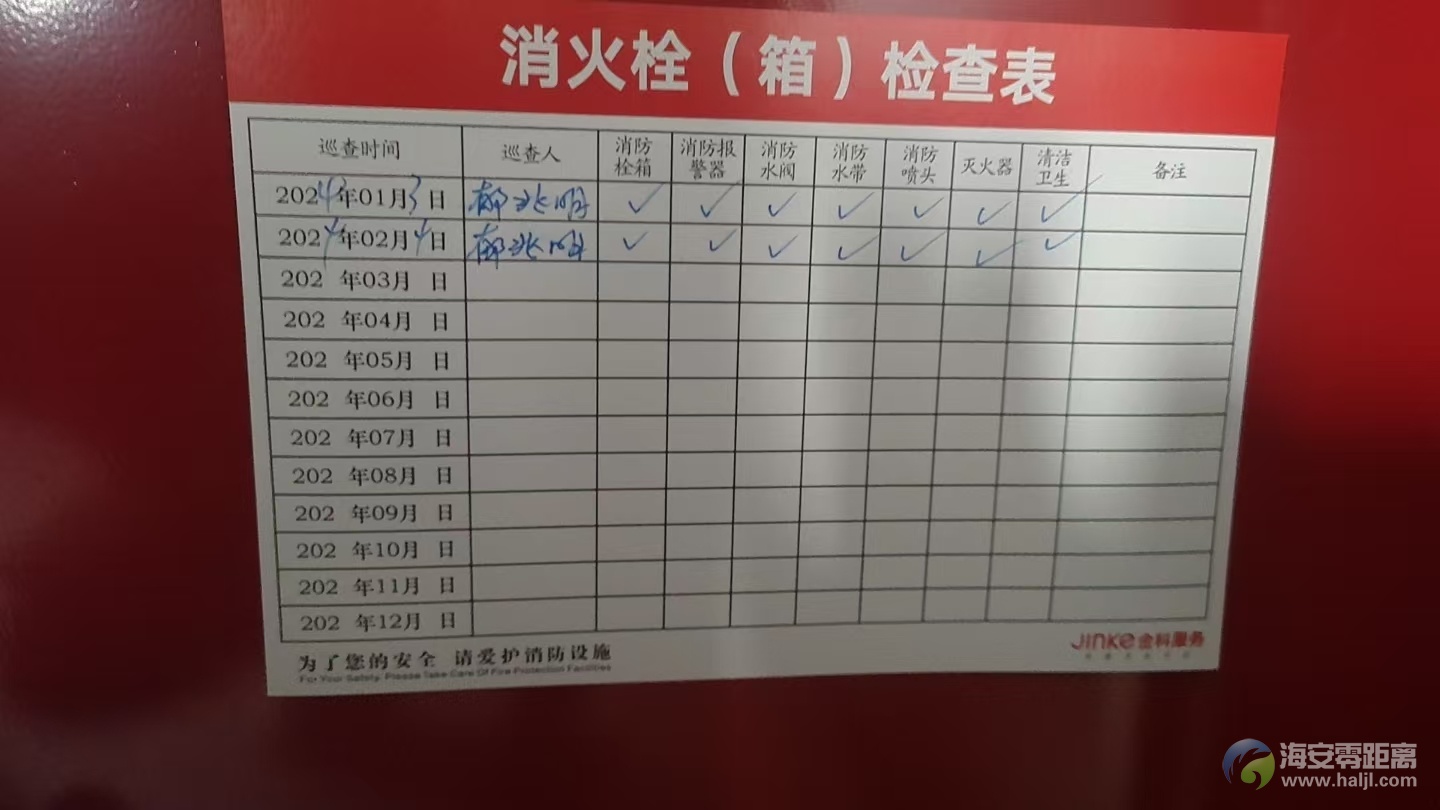 消火栓（箱）检查表
巡查时间 巡查人 消防栓箱 消防报警器 消防水阀 消防水带 消防喷头 灭火器 清洁卫生 备注
2024年01月3日 郁兆明 ✓ ✓ ✓ ✓ ✓ ✓ ✓
2024年02月4日 郁兆明 ✓ ✓ ✓ ✓ ✓ ✓ ✓
202 年03月 日
202 年04月 日
202 年05月 日
202 年06月 日
202 年07月 日
202 年08月 日
202 年09月 日
202 年10月 日
202 年11月 日
202 年12月 日
为了您的安全 请爱护消防设施
For Your Safety. Please Take Care Of Fire Protection Facilities
Jinke金科服务
海安零距离
www.haljl.com